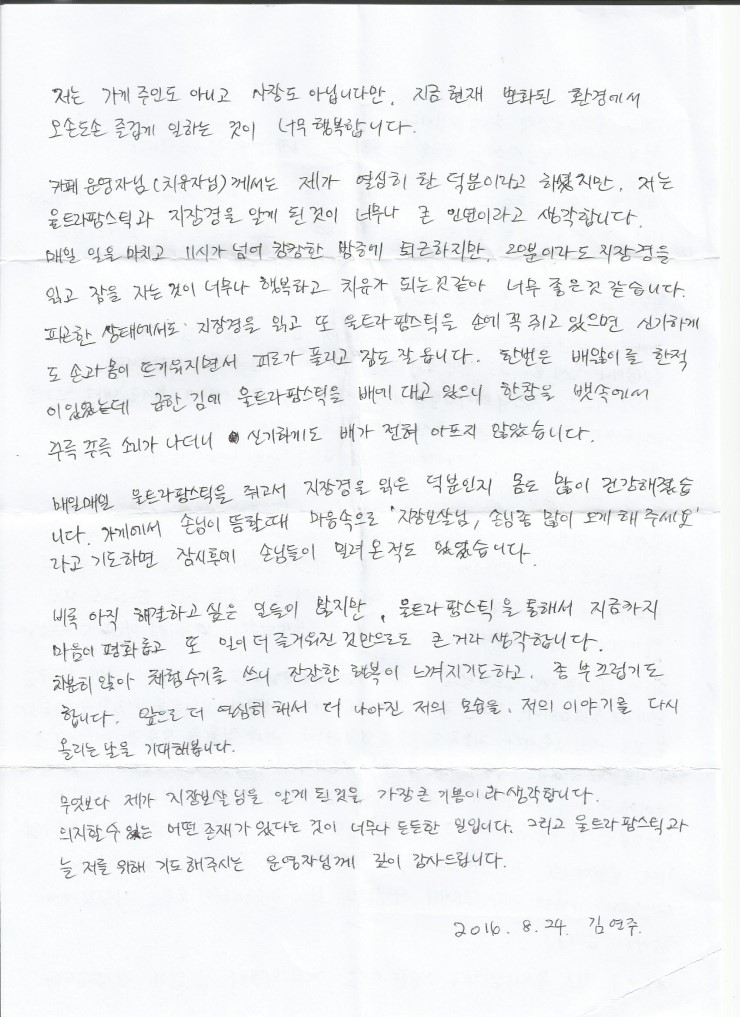 저는 가게 주인도 아니고 사장도 아닙니다만, 지금 현재 변화된 환경에서
오손도손 즐겁게 일하는 것이 너무 행복합니다.
카페 운영자님(치유자님)께서는 제가 열심히 한 덕분이라고 하셨지만, 저는
울트라팜스틱과 지장경을 알게 된 것이 너무나 큰 인연이라고 생각합니다.
매일 일을 마치고 11시가 넘어 캄캄한 밤중에 퇴근하지만, 20분이라도 지장경을
읽고 잠을 자는 것이 너무나 행복하고 치유가 되는것 같아 너무 좋은것 같습니다.
피곤한 상태에서도 지장경을 읽고 또 울트라팜스틱을 손에 꼭 쥐고 있으면 신기하게
도 손과 몸이 뜨거워지면서 피로가 풀리고 잠도 잘 옵니다. 한번은 배앓이를 한적
이 있었는데 급한 김에 울트라팜스틱을 배에 대고 있으니 한참을 뱃속에서
주륵 주륵 소리가 나더니 신기하게도 배가 전혀 아프지 않았습니다.
매일매일 울트라팜스틱을 쥐고서 지장경을 읽은 덕분인지 몸도 많이 건강해졌습
니다. 가게에서 손님이 뜸할때 마음속으로 '지장보살님, 손님좀 많이 오게 해 주세요'
라고 기도하면 잠시후에 손님들이 밀려 온적도 있었습니다.
비록 아직 해결하고 싶은 일들이 많지만, 울트라팜스틱을 통해서 지금까지
마음이 평화롭고 또 일이 더 즐거워진 것만으로도 큰 거라 생각합니다.
차분히 앉아 체험수기를 쓰니 잔잔한 행복이 느껴지기도하고, 좀 부끄럽기도
합니다. 앞으로 더 열심히 해서 더 나아진 저의 모습을, 저의 이야기를 다시
올리는 날을 기대해봅니다.
무엇보다 제가 지장보살님을 알게 된것을 가장 큰 기쁨이라 생각합니다.
의지할 수 있는 어떤 존재가 있다는 것이 너무나 든든한 일입니다. 그리고 울트라팜스틱과
늘 저를 위해 기도해주시는 운영자님께 깊이 감사드립니다.
2016. 8. 24. 김연주.